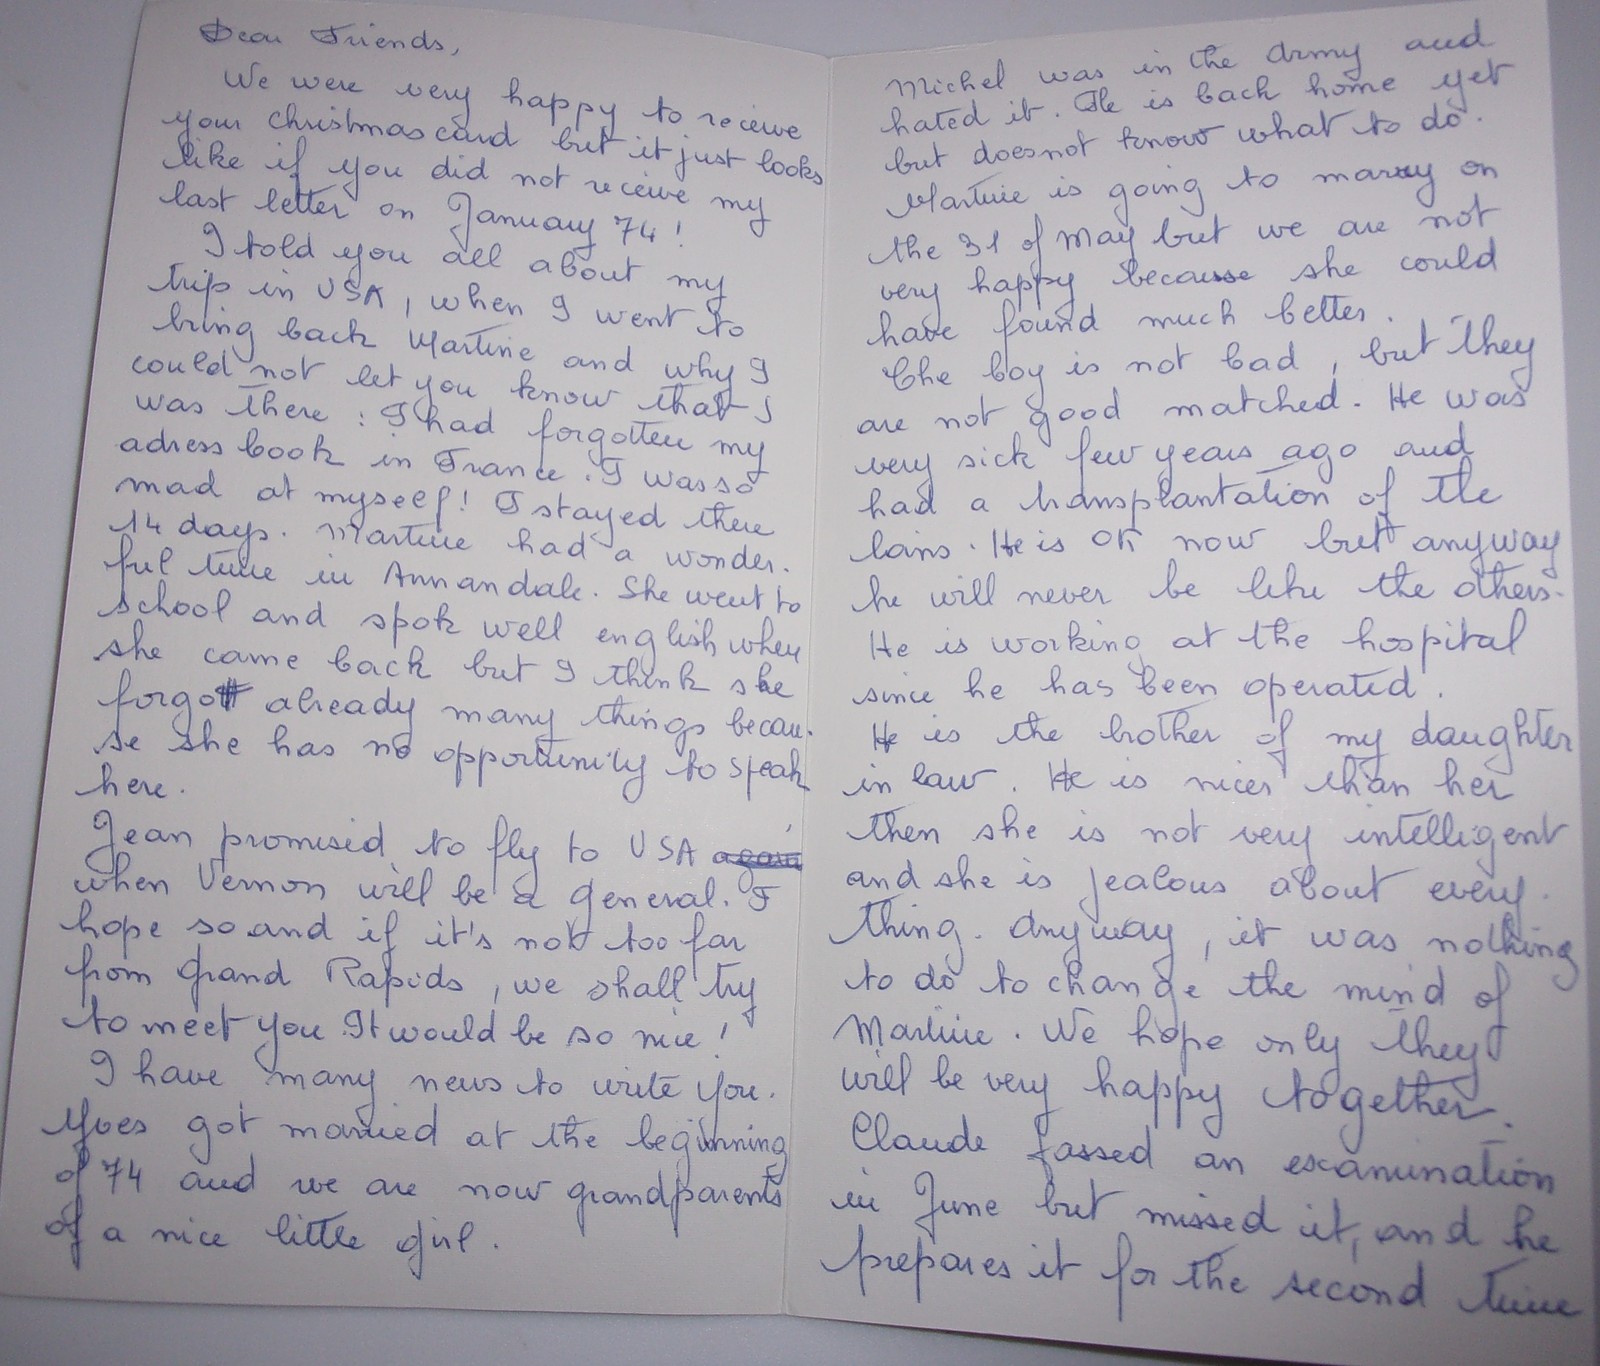 Dear Friends,
We were very happy to receive
your christmas card but it just looks
like if you did not receive my
last letter on January 74!
I told you all about my
trip in USA, when I went to
bring back Martine and why I
could not let you know that I
was there : I had forgotten my
adress book in France. I was so
mad at myself! I stayed there
14 days. Martine had a wonder.
ful time in Annandale. She went to
school and spok well english when
she came back but I think she
forgott already many things becau.
se she has no opportunity to speak
here.
Jean promised to fly to USA again
when Vernon will be a general. I
hope so and if it's not too far
from Grand Rapids, we shall try
to meet you. It would be so nice!
I have many news to write you.
Yves got married at the beginning
of 74 and we are now grandparents
of a nice little girl.
Michel was in the Army and
hated it. He is back home yet
but doesnot know what to do.
Martine is going to marry on
the 31 of May but we are not
very happy because she could
have found much better.
The boy is not bad, but they
are not good matched. He was
very sick few years ago and
had a transplantation of the
loins. He is OK now but anyway
he will never be like the others.
He is working at the hospital
since he has been operated.
He is the brother of my daughter
in law. He is nicer than her
then she is not very intelligent
and she is jealous about every.
thing. Anyway, it was nothing
to do to change the mind of
Martine. We hope only they
will be very happy together.
Claude passed an examination
in June but missed it, and he
prepares it for the second time